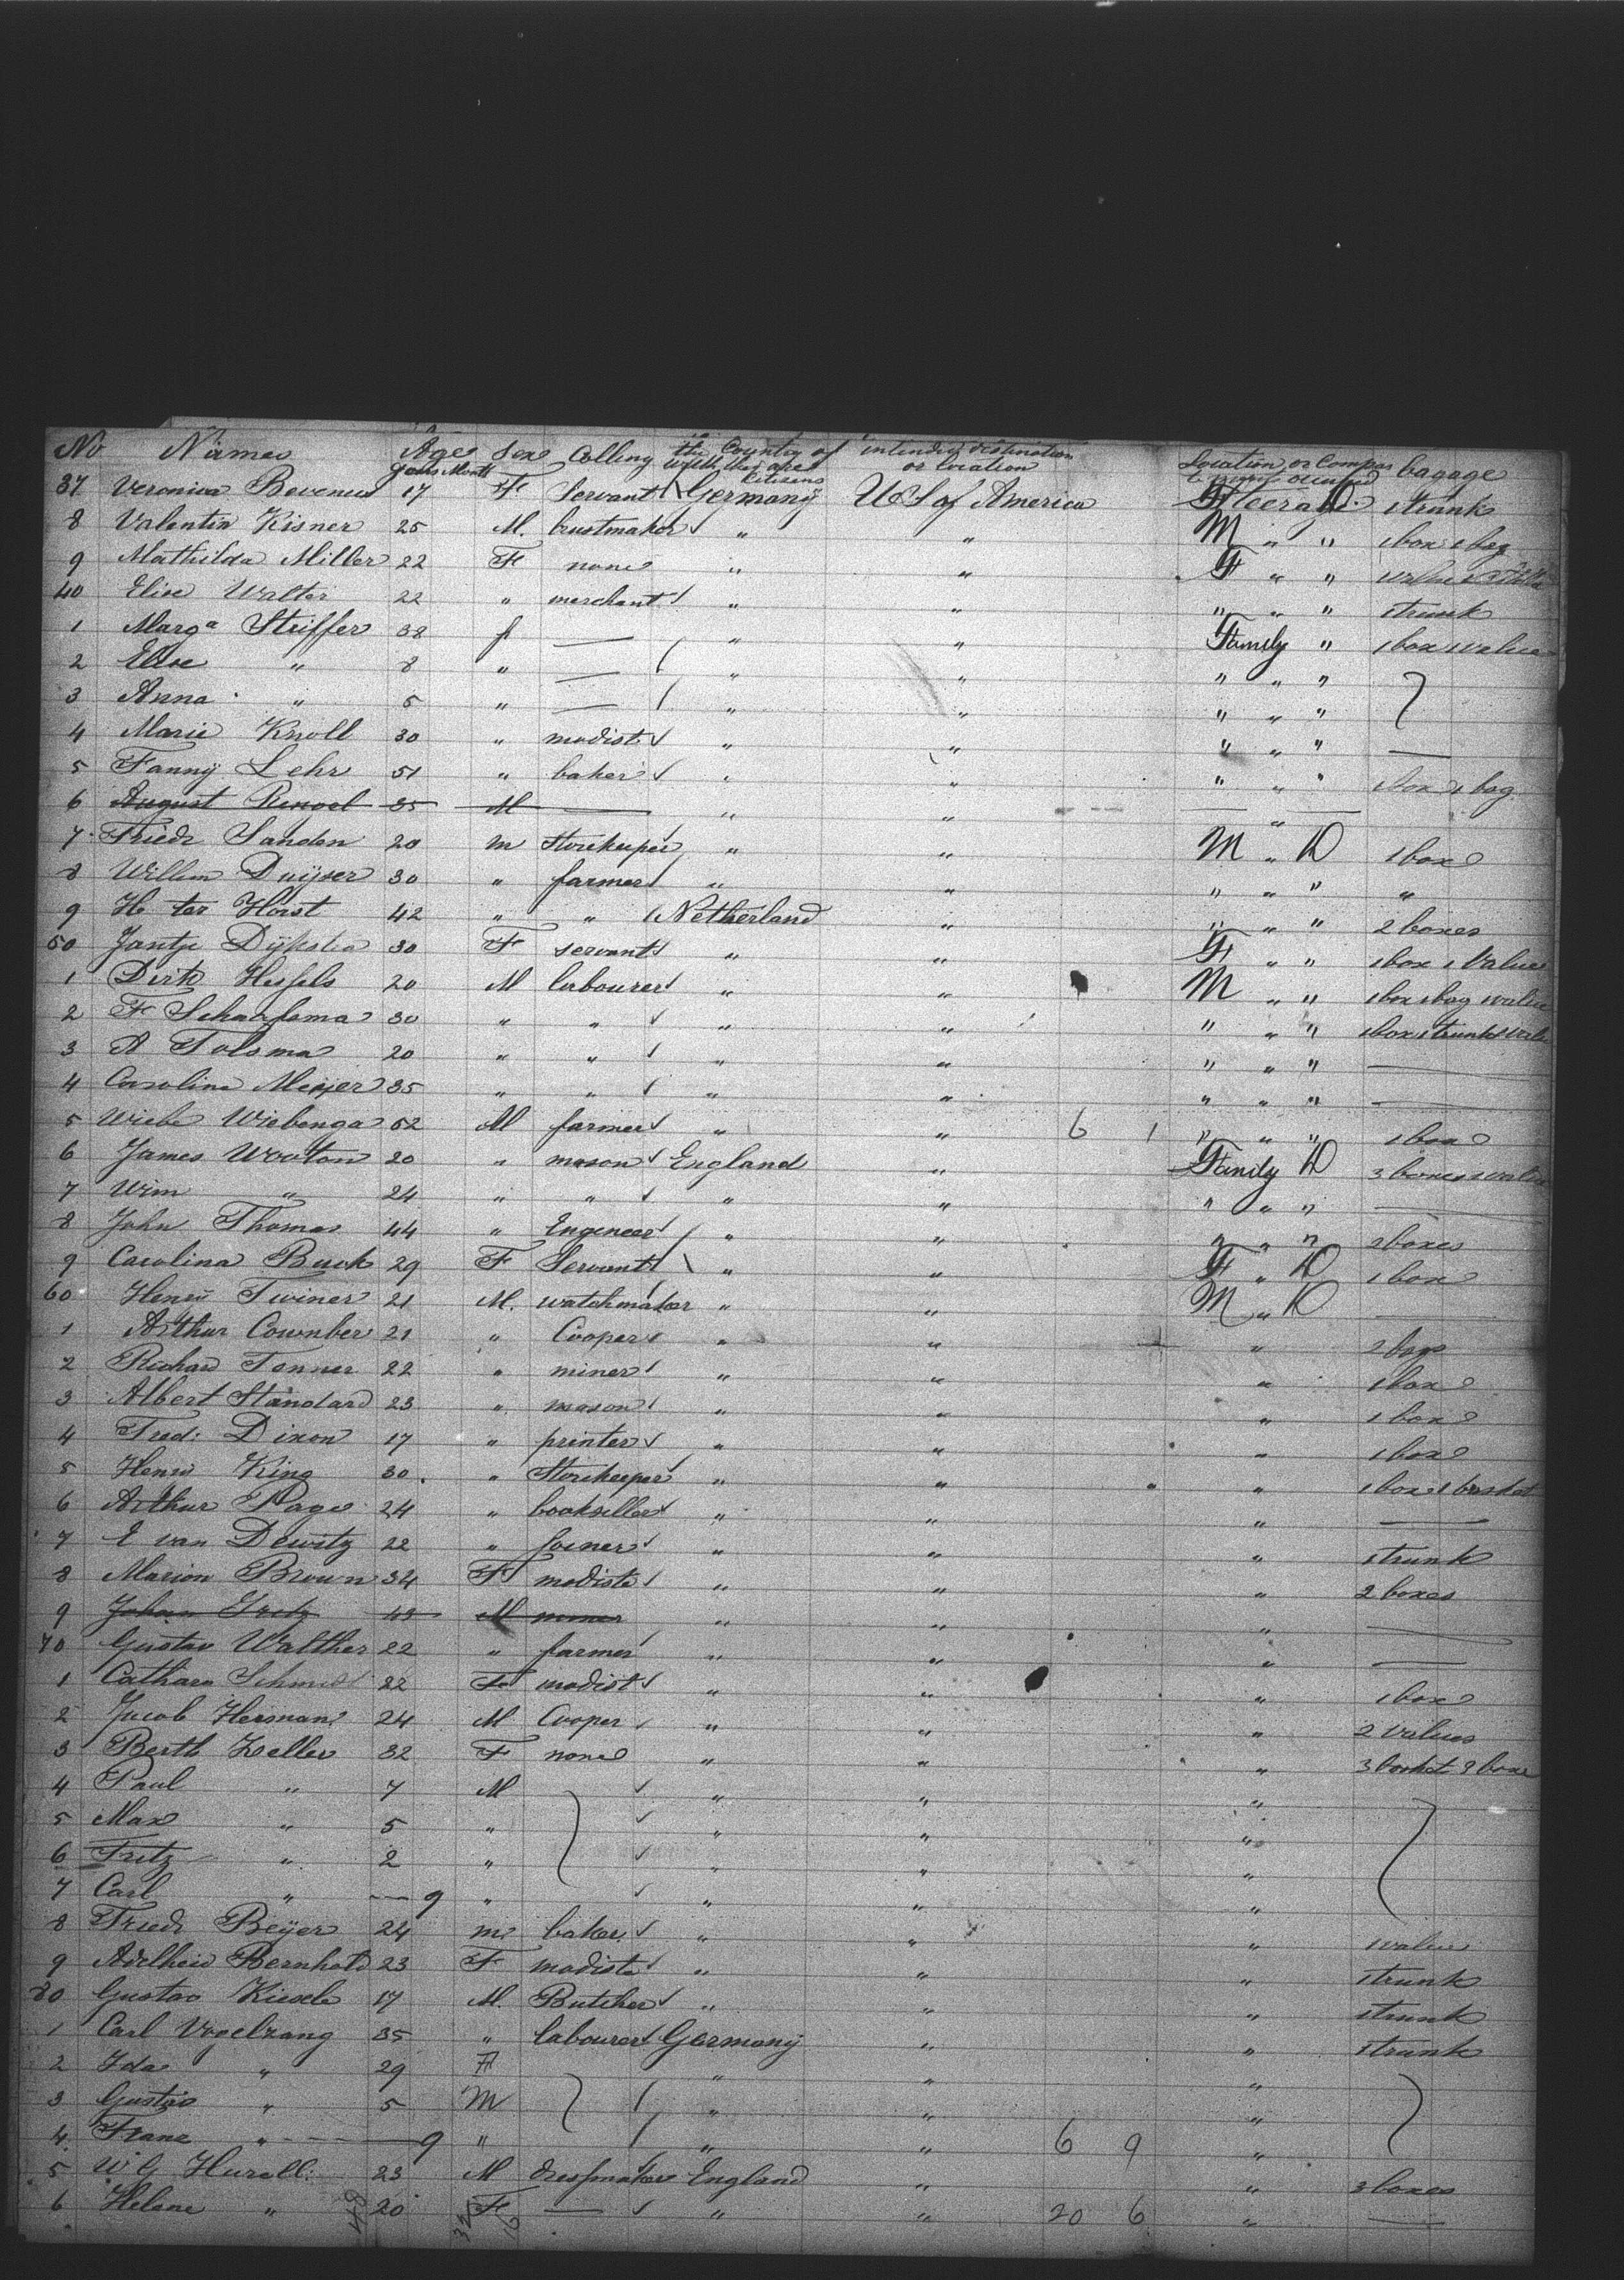 No Names Age Sex Calling the Country of which they are Citizens intended destination or location Location or Compar bagage
years Month
37 Veronica Bevenus 17 F Servant Germany US of America F Steerage D. 1 trunk
8 Valentin Kisner 25 M. brustmaker " " M " " 1 box 1 bag
9 Mathilda Miller 22 F none " " F " "
40 Elise Walter 22 " merchant " " " " " 1 trunk
1 Marga Striffer 38 f — " " Family " 1 box 1 valise
2 Elise " 8 " — " " " " "
3 Anna " 5 " — " " " " "
4 Marie Knoll 30 " modist " " " " " —
5 Fanny Lehr 51 " baker " " " " " 1 box 1 bag
6 August Renoel 35 M — " " — " —
7 Friedr Sanden 20 m Storekeeper " " M " D 1 box
8 Willem Duijser 30 " farmer " " " " " "
9 H ter Horst 42 " " Netherland " " " " 2 boxes
50 Jantje Dijkstra 30 F servant " " F " " 1 box 1 Value
1 Dirk Hessels 20 M labourer " " M " " 1 box 1 bag 1 value
2 F Schaafsma 30 " " " " " " " 1 box 1 trunk 1 vale
3 A Tolsma 20 " " " " " " " —
4 Caroline Meijer 35 " " " " " " " —
5 Wiebe Wiebenga 52 M farmer " " 6 1 " " " 1 box
6 James Wooton 20 " mason England " Family D 3 boxes 1 valise
7 Wim " 24 " " " " " " " —
8 John Thomas 44 " Engineer " " " " " 2 boxes
9 Carolina Buck 29 F Servant " " F " D 1 box
60 Henry Twiner 21 M. watchmaker " " M " D —
1 Arthur Cownber 21 " Cooper " " " 2 bags
2 Richard Tonner 22 " miner " " " 1 box
3 Albert Standard 23 " mason " " " 1 box
4 Fred: Dixon 17 " printer " " " 1 box
5 Henri King 30 " Storekeeper " " " 1 box 1 basket
6 Arthur Page 24 " bookseller " " " —
7 E van Dewitz 22 " Joiner " " " 1 trunk
8 Marion Brown 34 F modiste " " " 2 boxes
9 Johan Fritz 43 M " " " —
70 Gustav Walther 22 " farmer " " " —
1 Cathara Schmidt 22 F modist " " " 1 box
2 Jacob Hermans 24 M Cooper " " " 2 values
3 Berth Zeller 32 F none " " " 3 basket 2 boxe
4 Paul " 7 M " " "
5 Max " 5 " " " "
6 Fritz " 2 " " " "
7 Carl " — 9 " " " "
8 Friedr Beijer 24 m baker " " " 1 value
9 Adelheid Bernhold 23 F modiste " " " 1 trunk
80 Gustav Kiesele 17 M. Butcher " " " 1 trunk
1 Carl Vogelzang 35 " labourer Germany " " 1 trunk
2 Ida " 29 F " " "
3 Gustav " 5 M " " "
4 Franz " — 9 " " " 6 9 "
5 W G Hurell: 23 M dressmaker England " " 3 boxes
6 Helene " 20 F — " " 20 6 " —
48 32 16